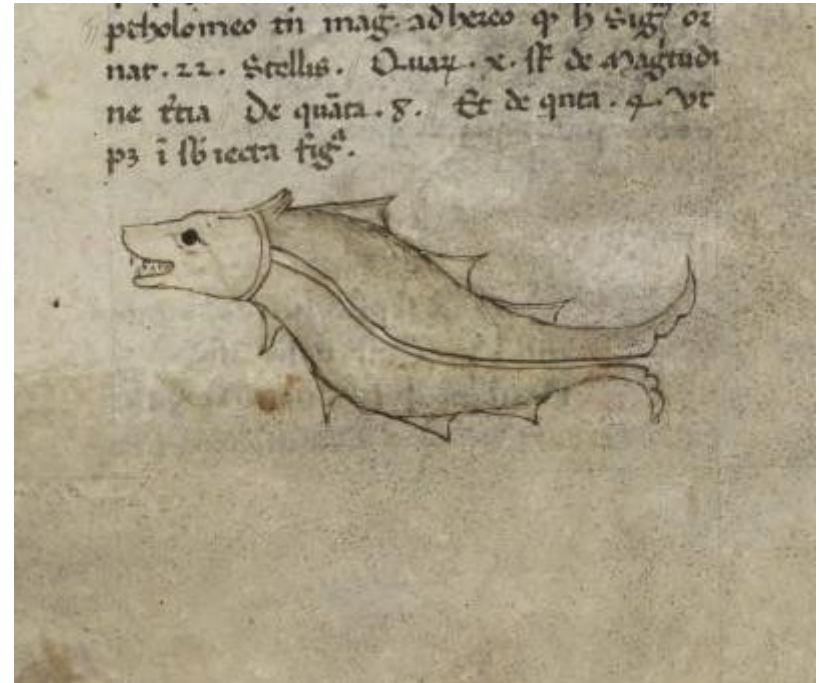 ptholomeo tñ mag̃. adhereo ꝙ h̃ Sigͫ or
nat. 22. Stellis. Quaꝝ. x. st̃ de Magitudi
ne t̃tia De quãta. 8. Et de qnta. 4. vt
pꝫ ĩ sb̃iecta figͣ.